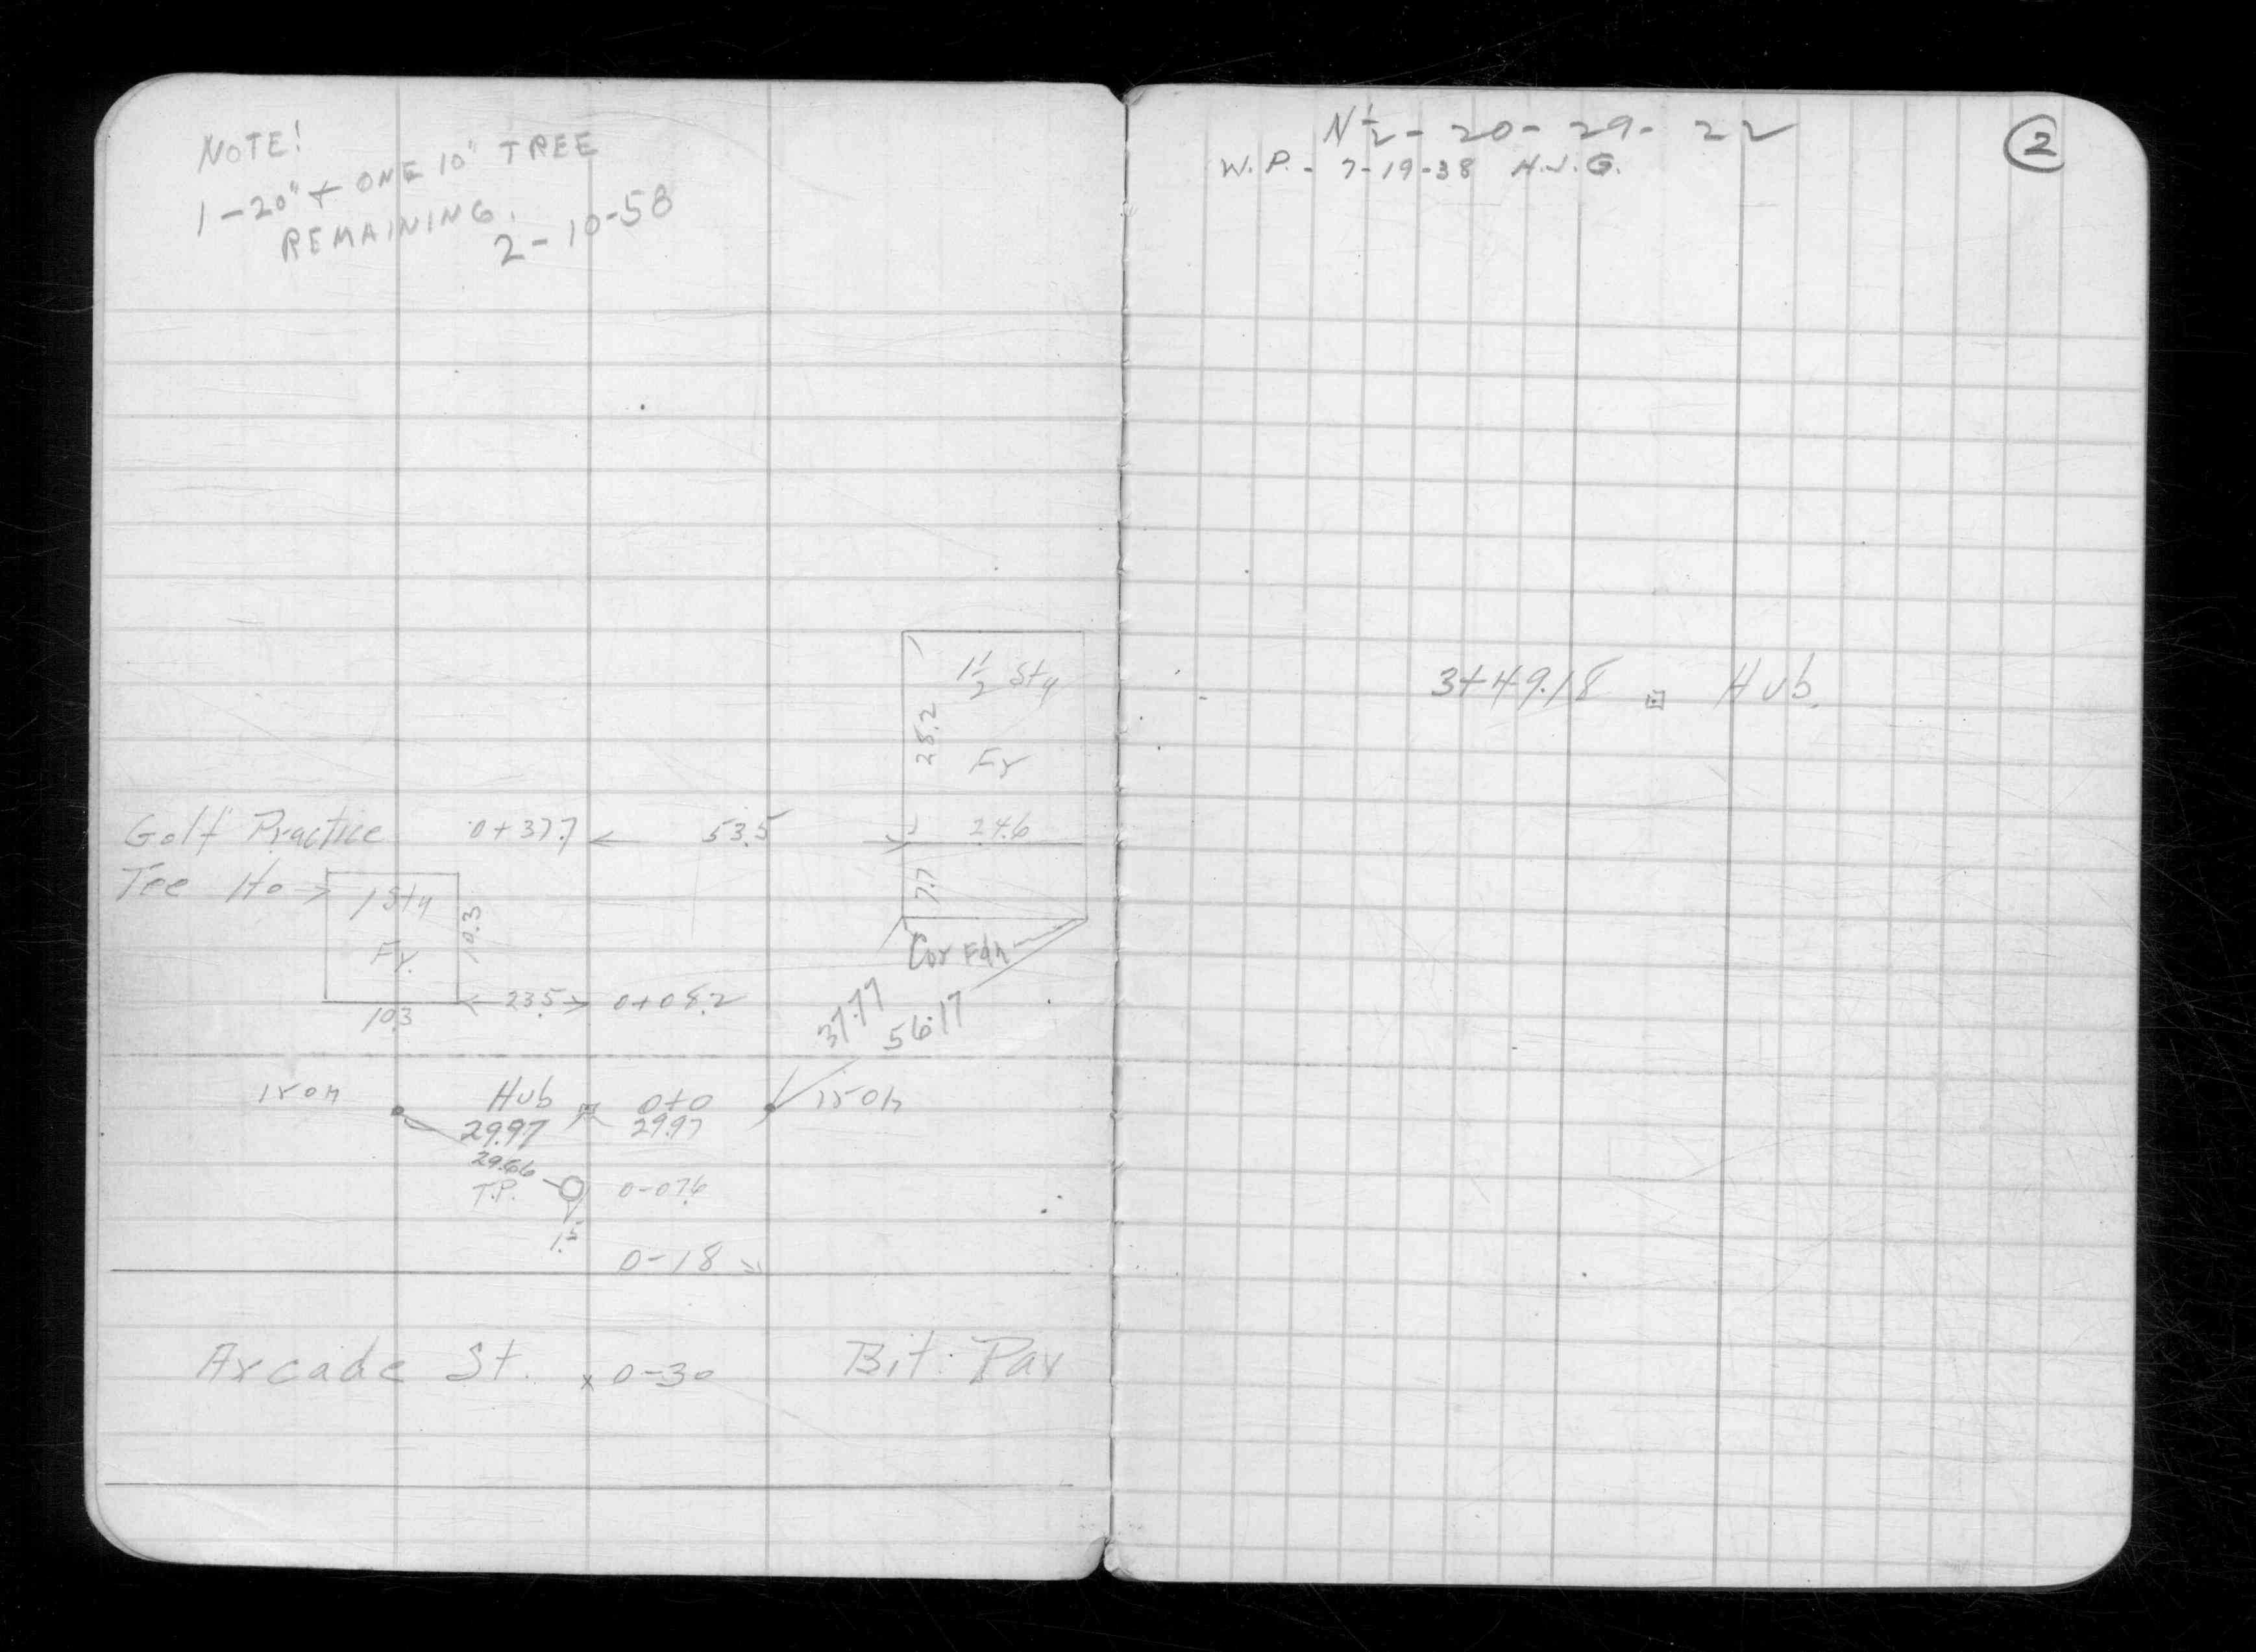 NOTE!
1-20" + ONE 10" TREE
REMAINING.
2-10-58
1½ Sty
28.2
Fr
Golf Practice 0+37.7 53.5 24.6
Tee Ho 1 Sty 7.7
10.3
Fr.
Cor Fdn
10.3 23.5 0+08.2
37.77
56.17
Iron Hub 0+0 Iron
29.97 29.97
29.66
T.P. 0-07.6
1.5
0-18
Arcade St. x 0-30 Bit. Pav
N½ - 20 - 29 - 22
2
W.P. - 7-19-38 H.J.G.
3+49.18 Hub.